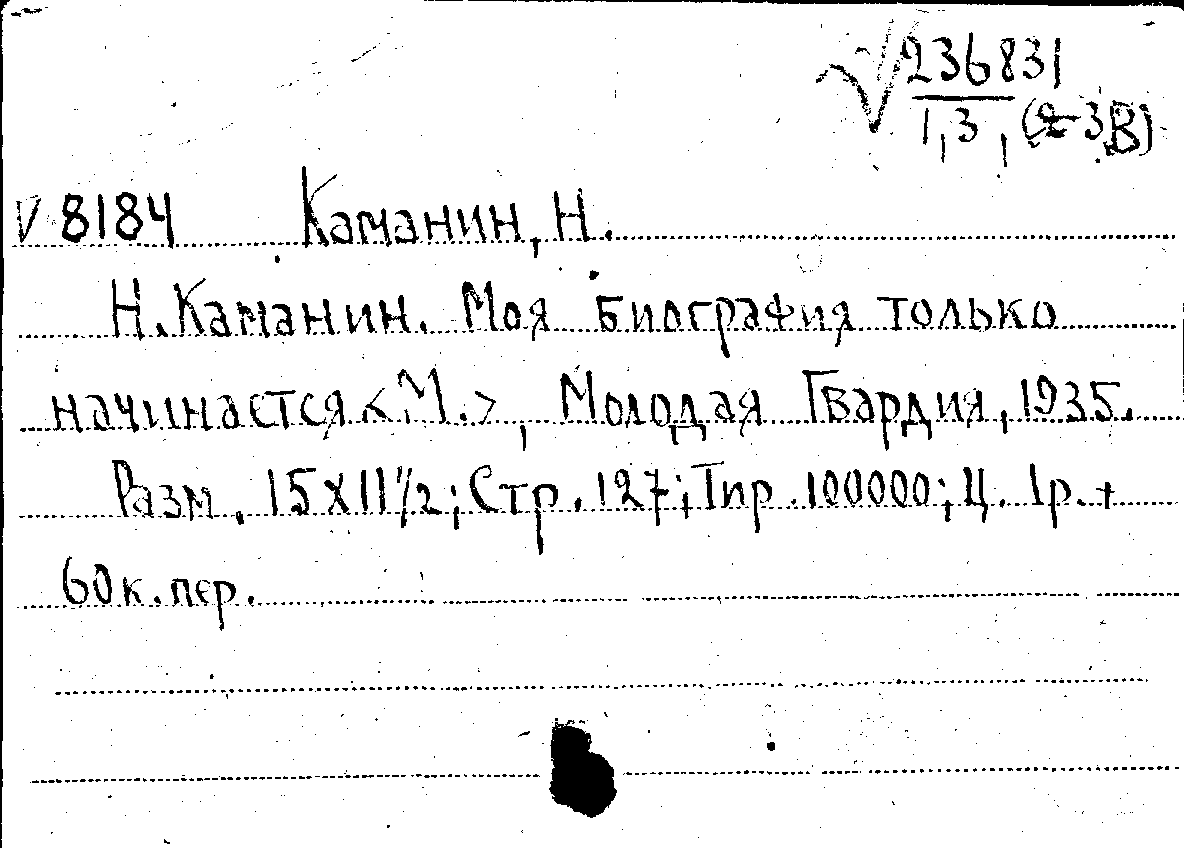 √236831
1,3, (2-3В)
V 8184 Каманин, Н.
Н. Каманин. Моя биография только
начинается <М.>, Молодая Гвардия, 1935.
Разм. 15х11½; Стр. 127; Тир. 100000; Ц. 1р. +
60к. пер.